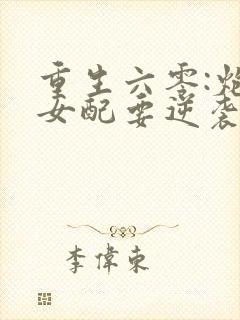 重生六零:炮
女配要逆袭
李偉東